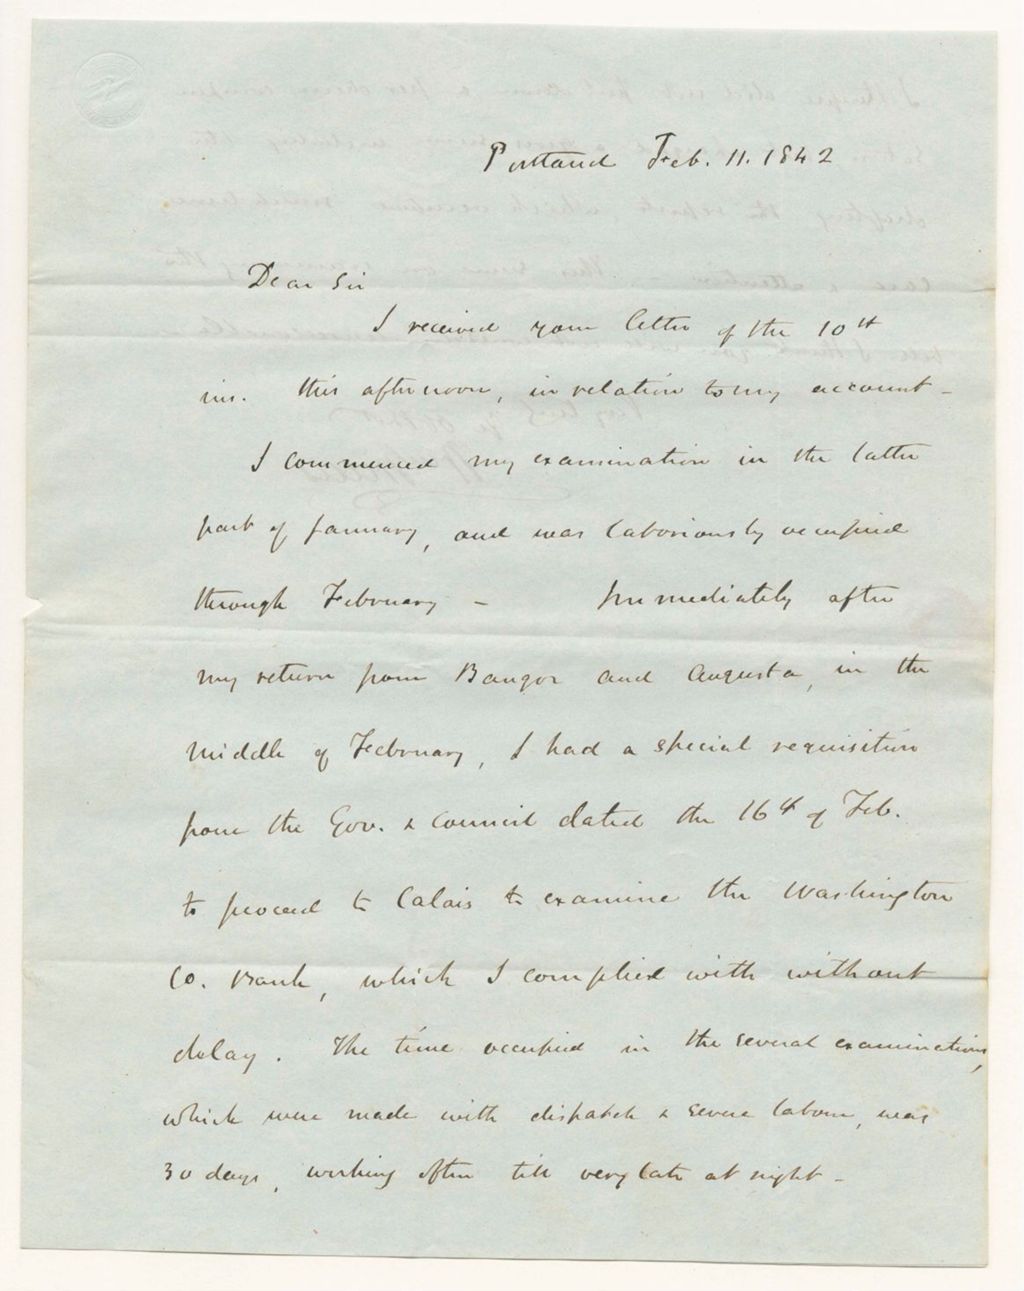 Portland Feb. 11. 1842
Dear Sir
I received your letter of the 10th
ins. this afternoon, in relation to my account -
I commenced my examination in the latter
part of January, and was laboriously occupied
through February - Immediately after
my return from Bangor and Augusta, in the
middle of February, I had a special requisition
from the Gov. & council dated the 16th of Feb.
to proceed to Calais to examine the Washington
Co. Bank, which I complied with without
delay. The time occupied in the several examinations,
which were made with dispatch & severe labour, was
30 days, working often till very late at night -